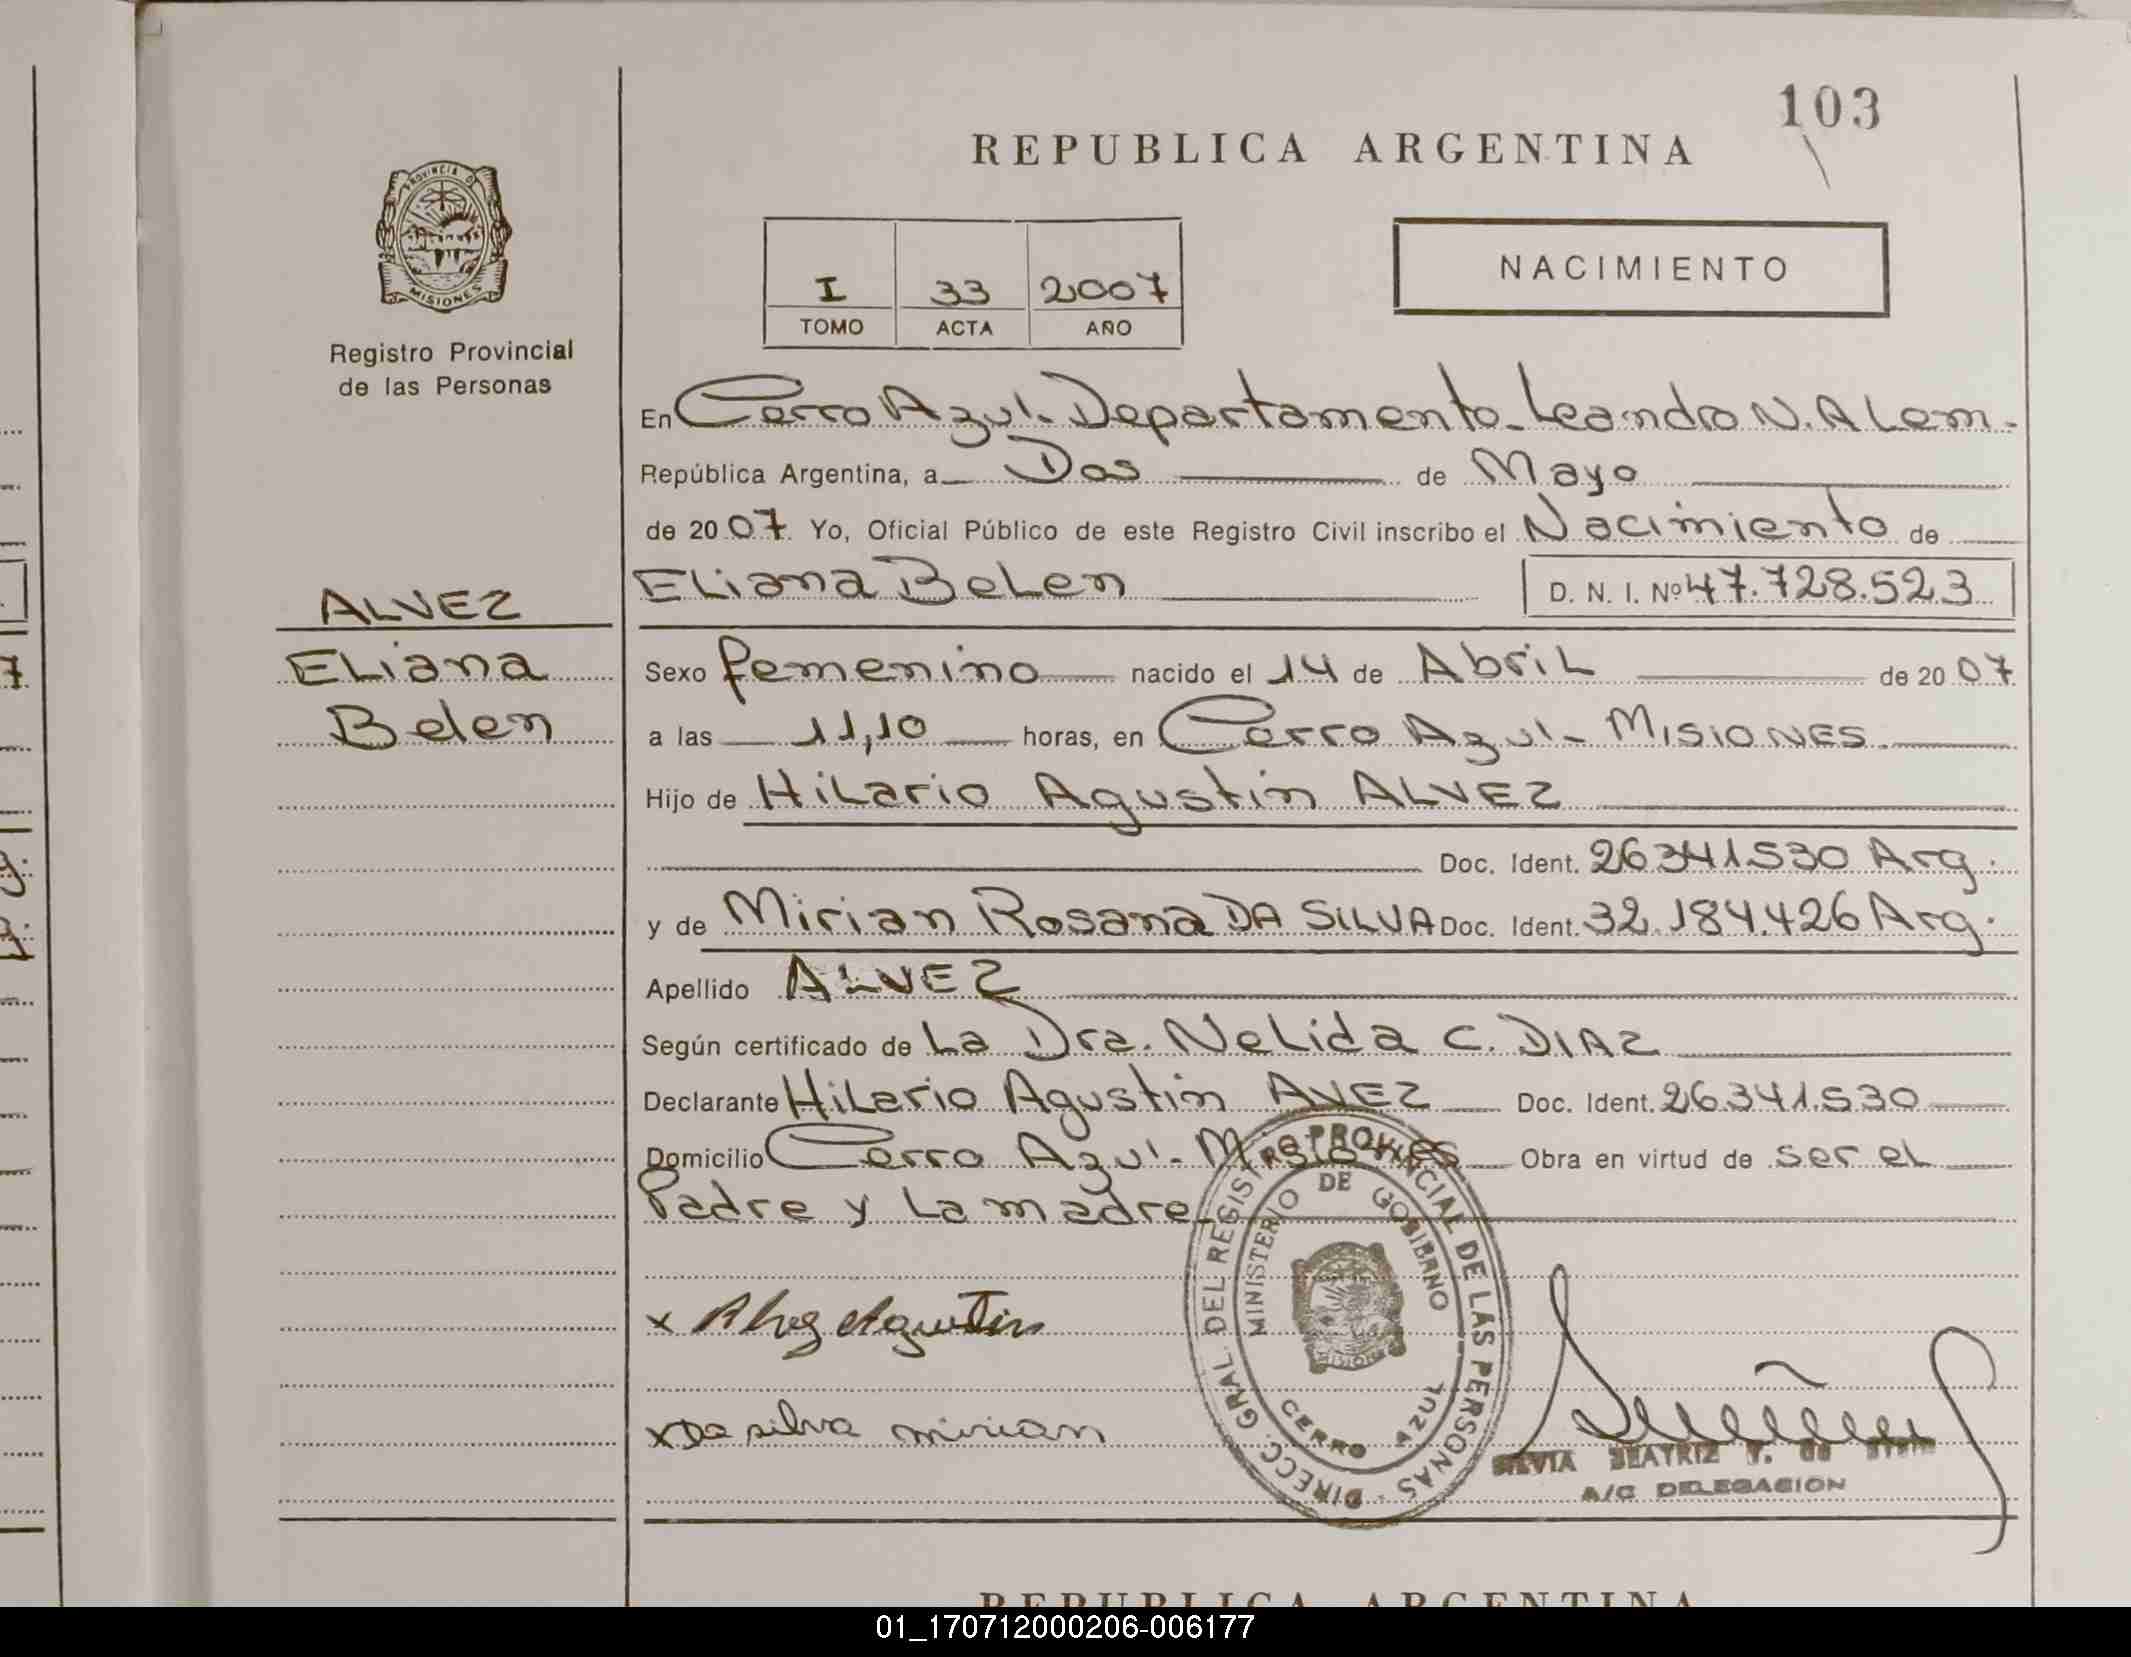 103
REPUBLICA ARGENTINA
PROVINCIA D
MISIONES
Registro Provincial
de las Personas
I 33 2007
TOMO ACTA AÑO
NACIMIENTO
En Cerro Azul - Departamento - Leandro N. ALem -
República Argentina, a Dos de Mayo
de 2007 Yo, Oficial Público de este Registro Civil inscribo el Nacimiento de
ELiana BeLen D. N. I. Nº 47.728.523
ALVEZ
ELiana
Belen
Sexo femenino nacido el 14 de AbriL de 2007
a las 11,10 horas, en Cerro Azul - MISIONES.
Hijo de HiLario Agustin ALVEZ
Doc. Ident. 26341530 Arg.
y de Mirian Rosana DA SILVA Doc. Ident. 32.184.426 Arg.
Apellido ALVEZ
Según certificado de La Dra. NeLida C. DIAZ
Declarante HiLario Agustin AVEZ Doc. Ident. 26.341.530
Domicilio Cerro Azul - Misiones Obra en virtud de ser eL
Padre y La madre.
x Alvez Agustin
x Da silva mirian
DIRECC. GRAL. DEL REGISTRO PROVINCIAL DE LAS PERSONAS -
MINISTERIO DE GOBIERNO
CERRO AZUL
SILVIA BEATRIZ
A/C DELEGACION
REPUBLICA ARGENTINA
01_170712000206-006177